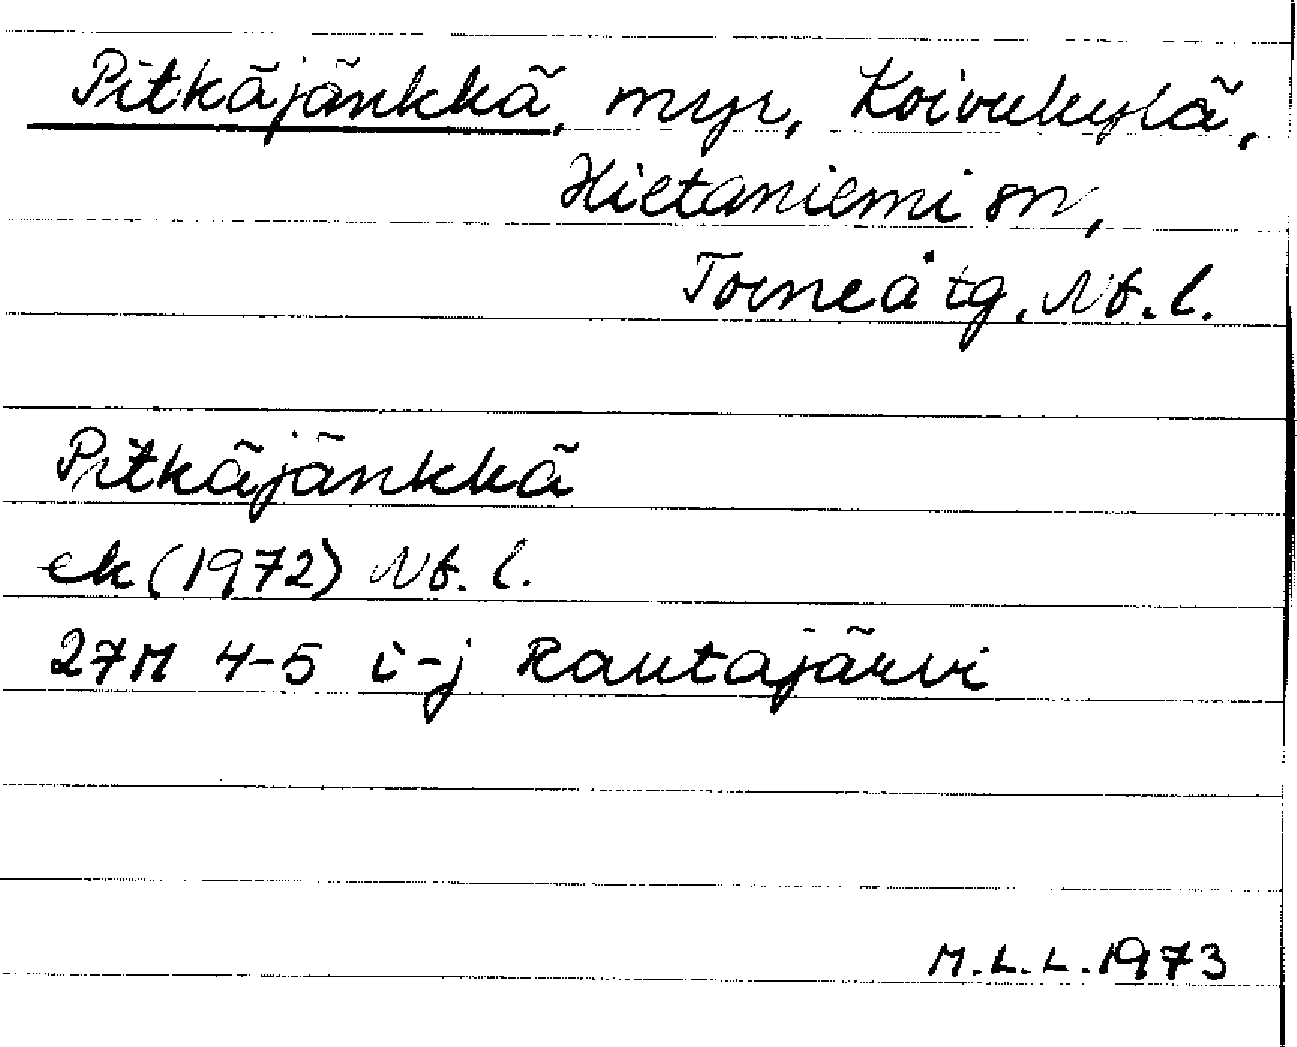 Pitkäjänkkä, myr, Koivukylä,
Hietaniemi sn,
Torneå tg. Nb. l.
Pitkäjänkkä
ek (1972) Nb. l.
27M 4-5 i-j Rautajärvi
M.L.L. 1973